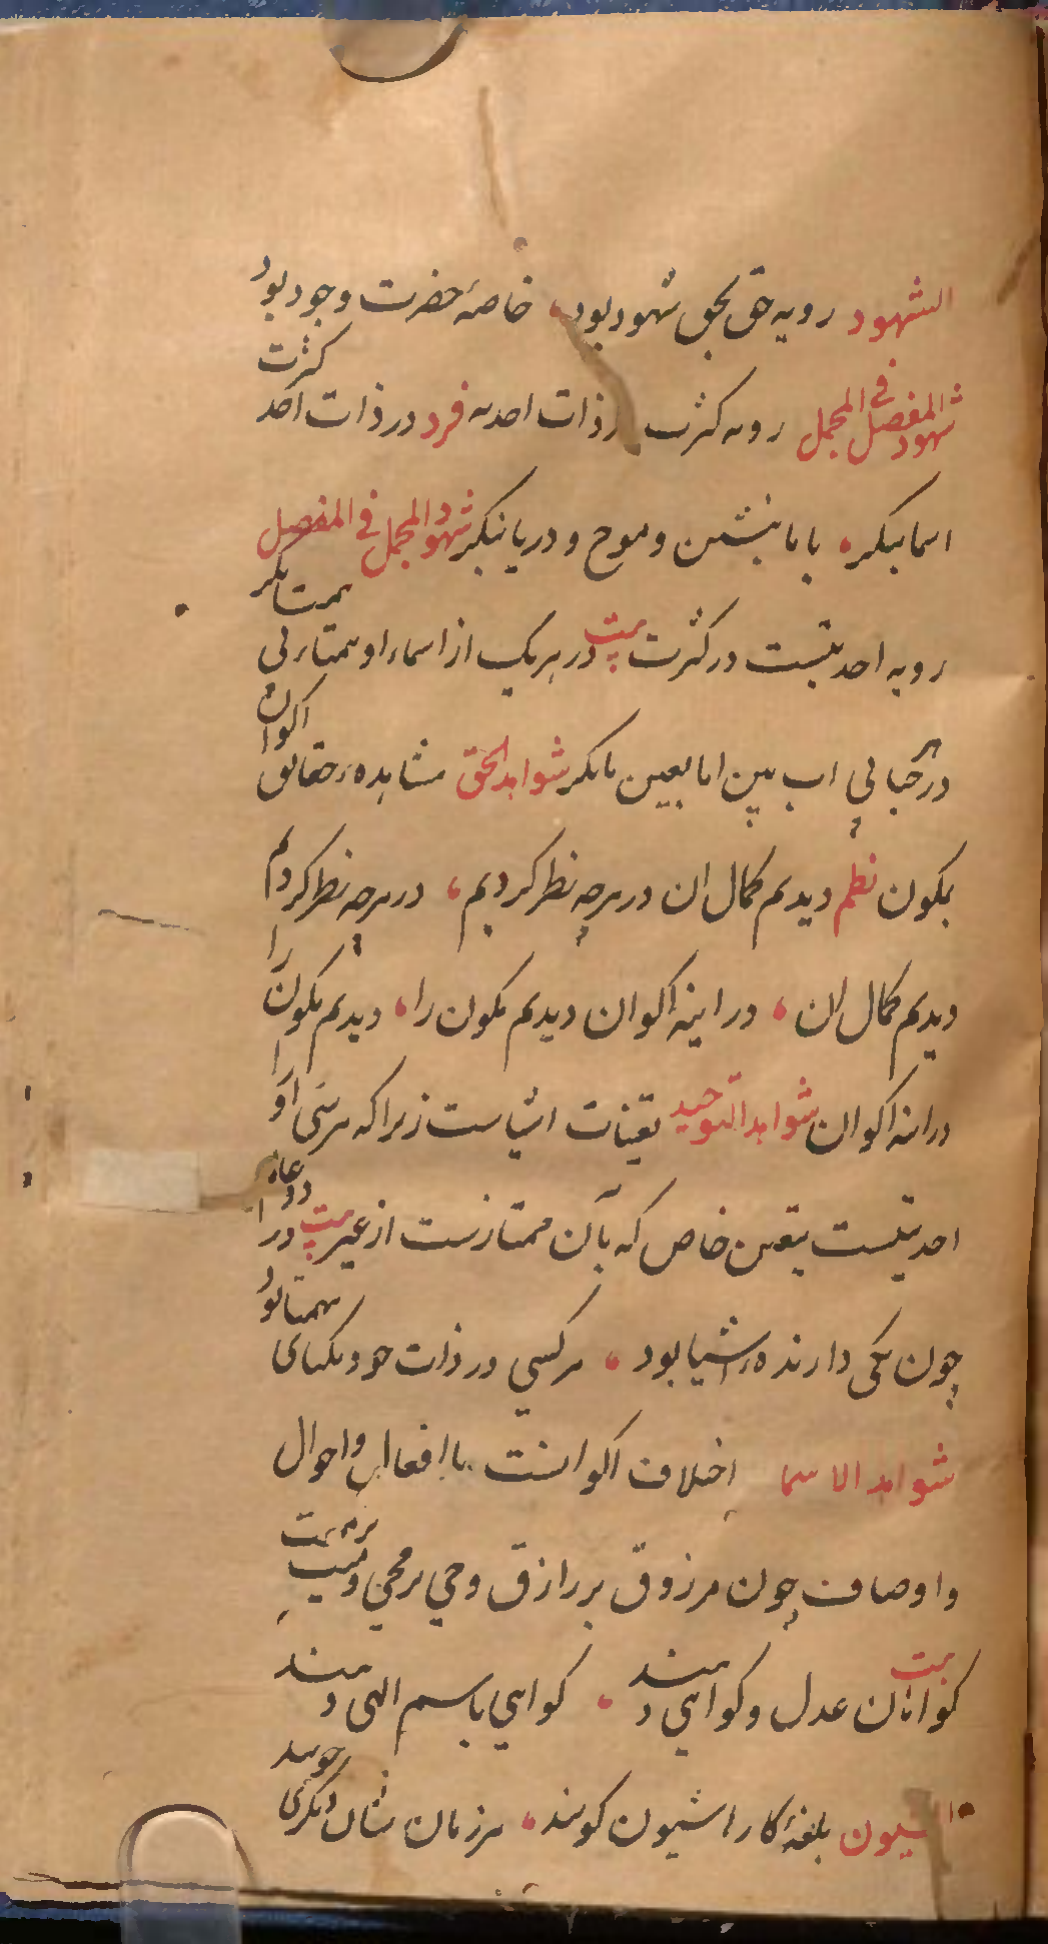 الشهود رویه حق بحق شهود بود، خاصهٔ حضرت وجود بود
شهود المفصل فی المجمل رویه کثرت در ذات احدیه فرد در ذات احد کثرت
اسما بنگر، با ما بنشین و موج و دریا بنگر شهود المجمل فی المفصل
رویه احدیتست در کثرت بیت در هر یک از اسماء او همتا بنگر
در حبابی اب بین اما بعین ما نگر شواهد الحق مشاهده حقایق اکوان
بکون نظم دیدیم کمال ان در هرچه نظر کردیم، در هرچه نظر کردیم
دیدیم کمال ان، در اینهٔ اکوان دیدیم مکون را، دیدیم مکون را
در اینه اکوان شواهد التوحید تعینات اشیاست زیرا که هر شی را
احدیتیست بتعین خاص که بآن ممتازست از غیر بیت در
چون یکی دارنده اشیا بود، هر کسی در ذات خود یکتای بی همتا بود
شواهد الاسما اختلاف اکوانست با افعال و احوال
و اوصاف چون مرزوق بر رازق و حی بر محیی و میت بر ممیت
بیت کواهان عدل و کواهی دهند، کواهی باسم الهی دهند
الشیون بلغهٔ کار را شیون کویند، هر زمان شان دیگری جویند